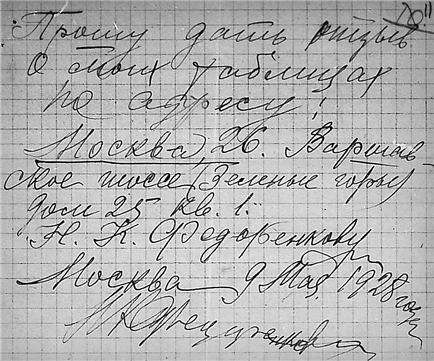 Прошу дать отзыв
о моих таблицах
по адресу:
Москва, 26. Варшав-
ское шоссе (Зеленые горы)
дом 25 кв. 1.
Н. К. Федоренкову
Москва 9 Мая, 1928 года